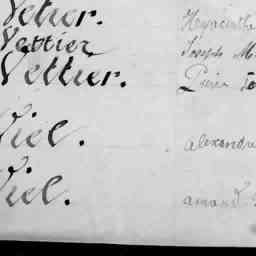 Vetier. Hyacinthe
Vettier Joseph M
Vettier. Pierre
Viel. alexandre
Viel. amand